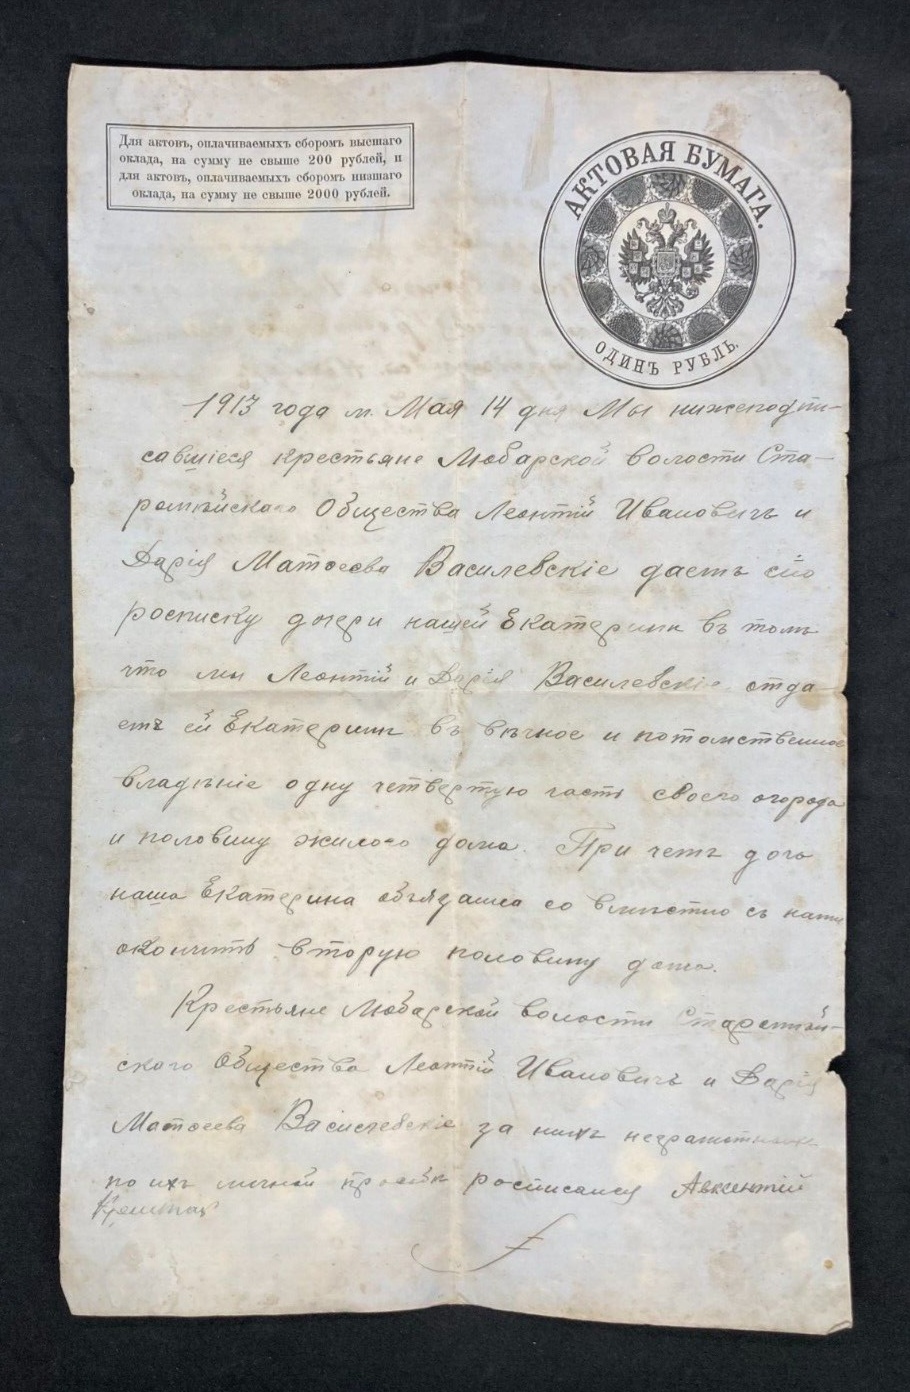 Для актовъ, оплачиваемыхъ сборомъ высшаго
оклада, на сумму не свыше 200 рублей, и
для актовъ, оплачиваемыхъ сборомъ низшаго
оклада, на сумму не свыше 2000 рублей.
АКТОВАЯ БУМАГА.
ОДИНЪ РУБЛЬ.
1913 года м. Мая 14 дня Мы нижеподпи-
савшіеся крестьяне Любарской волости Ста-
Общества Леонтій Ивановичъ и
Дарія Матѳеева Василевскіе даемъ сію
росписку дочери нашей Екатерини въ томъ
что мы Леонтій и Дарія Василевскіе отда-
емъ ей Екатерини въ вѣчное и потомственное
владѣніе одну четвертую часть своего огорода
и половину жилого дома. При чемъ дочь
наша Екатерина обязанна со вмѣстно съ нами
окончить вторую половину дома.
Крестьяне Любарской волости
ского Общества Леонтій Ивановичъ и Дарія
Матѳеева Васислевскіе за нихъ неграмотныхъ
по ихъ личной просьби росписался Авксентій